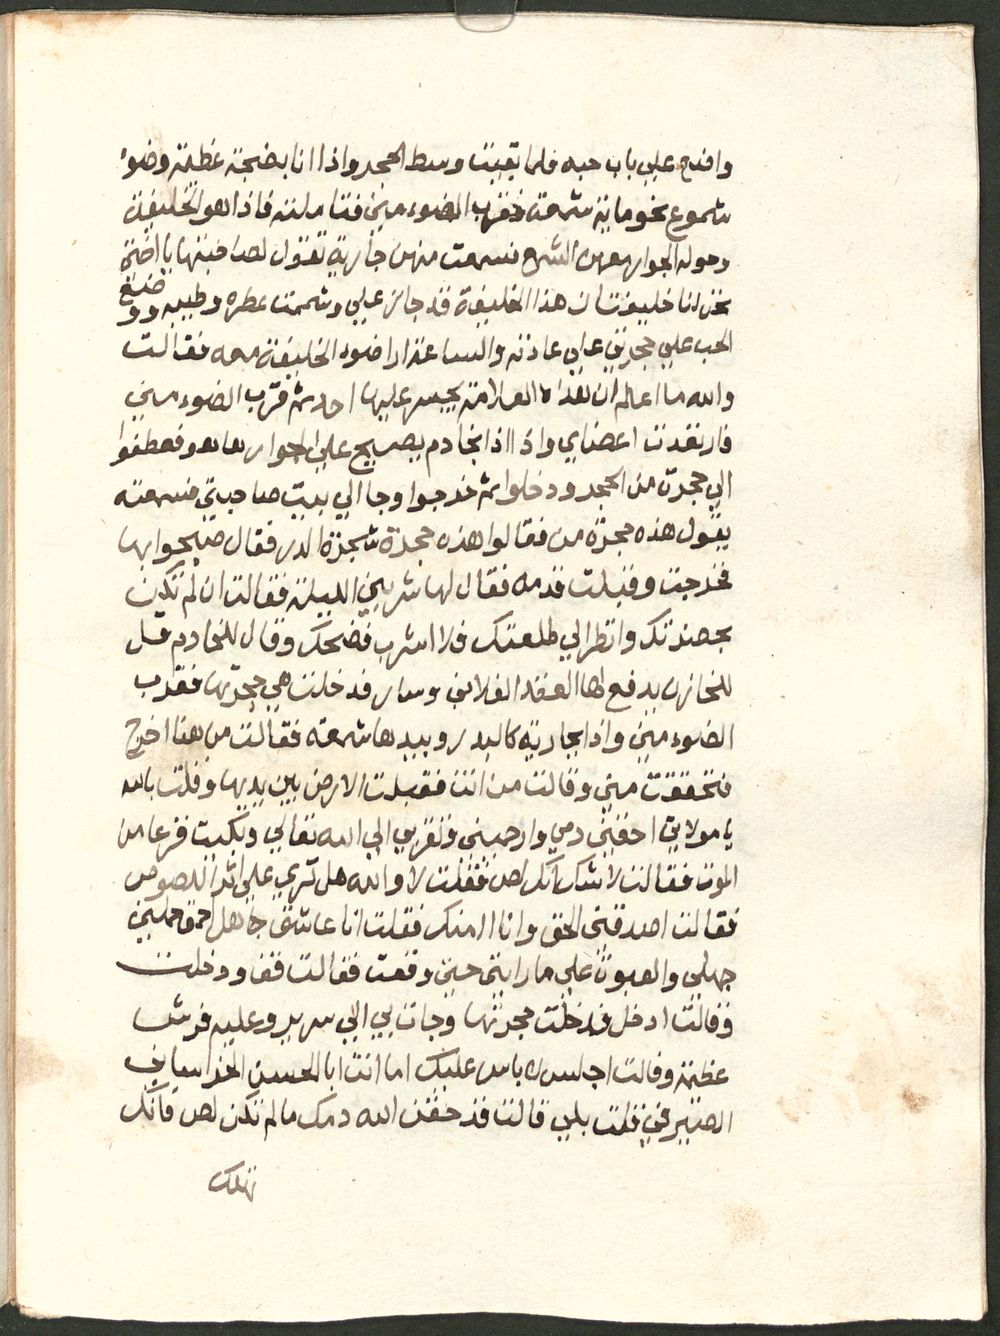 واضع علي باب حبه فلما بقيت وسط الحجر واذا انا بضجة عظيمة وضوء
شموع نحو ماية شمعة فقرب الضوء مني فتاملته فاذا هو الخليفة
وحوله الجوار معهن الشمع فسمعت منهن جارية تقول لصاحبتها يا اختي
نحن لنا خليفتان هذا الخليفة قد جاز علي وشممت عطره وطيبه ووضع
الحب علي حجرتي علي عادته والساعة ارا ضوء الخليفة معه فقالت
والله ما اعلم ان هذه العلامة يجسر عليها احد ثم قرب الضوء مني
فارتعدت اعضاي واذا الخادم يصيح علي الجوار هاهو فعطفوا
الي حجرة من الحجر ودخلوا ثم خرجوا وجا الي بيت صاحبتي فسمعته
يقول هذه حجرة من فقالوا هذه حجرة شجرة الدر فقال صيحوا بها
فخرجت وقبلت قدمه فقال لها تشربي الليلة فقالت ان لم تكن
بحضرتك وانظر الي طلعتك فلا اشرب فضحك وقال للخادم قل
للخازن يدفع لها العقد الفلاني وسار فدخلت هي حجرتها فقرب
الضوء مني واذا بجارية كالبدر وبيدها شمعة فقالت من هنا اخرج
فتحققت مني وقالت من انت فقبلت الارض بين يديها وقلت بالله
يا مولاتي احقني دمي وارحميني وتقربي الي الله تعالي وبكيت فزعا من
الموت فقالت لا شك انك لص فقلت لا والله هل تري علي اثر اللصوص
فقالت اصدقني الحق وانا امنك فقلت انا عاشق جاهل احمق حملني
جهلي والصبوة علي ما رايتي حتي وقعت فقالت قف ودخلت
وقالت ادخل فدخلت حجرتها وجات بي الي سرير وعليه فرش
عظيمة وقالت اجلس لا باس عليك اما انت ابا الحسن الخراساني
الصيرفي قلت بلي قالت قد حقن الله دمك ما لم تكن لص فانك
تهلك